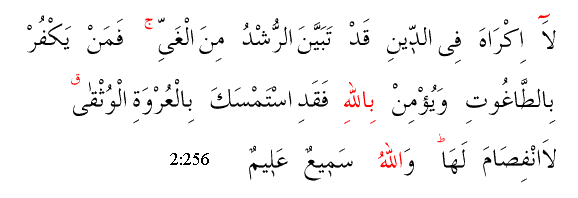 لَآ اِكْرَاهَ فِى الدّ۪ينِ قَدْ تَبَيَّنَ الرُّشْدُ مِنَ الْغَىِّۚ فَمَنْ يَكْفُرْ
بِالطَّاغُوتِ وَيُؤْمِنْ بِاللّٰهِ فَقَدِ اسْتَمْسَكَ بِالْعُرْوَةِ الْوُثْقٰىۗ
لَاانْفِصَامَ لَهَاۜ وَاللّٰهُ سَم۪يعٌ عَل۪يمٌ 2:256